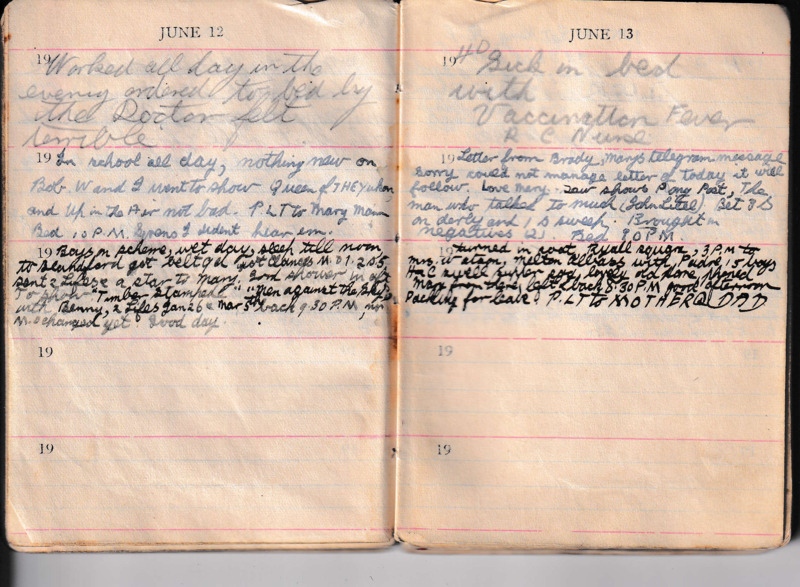 JUNE 12
19 Worked all day in the
evening ordered to bed by
the Doctor felt
terrible
19 In school all day, nothing new on
Bob. W and I went to show Queen of THE Yukon
and Up in the Air not bad. P.L.T to Mary Mom
Bed 10 P.M. I dident hear em.
19 Boys on scheme, wet day, sleep till noon,
to Blandford got belt get
sent 2 Lifes & a star to Mary, 3rd shower in
To show "Timber Stampede" "then against the
with Benny, 2 Lifes Jan 26 & Mar 5th back 9 30 P.M,
M. changed yet Good day
19
19
JUNE 13
1940 Sick in bed
with
Vaccination Fever
R C Nurse
19 Letter from Brady, Marys telegram message
sorry could not manage letter of today it will
follow. Love Mary. Saw shows Pony Post, The
man who talked to much (John Litel) Bet 3 S
on derby and 1 S sweep. Brought in
negatives (2). Bed 9 0 P M
19 turned in coat, Ryall square, 3 P.M to
Mrs. W stam, Melton Abbas with Padre, 15 boys
H & C swell supper, lovely old, phoned
Mary from there, left & back 8:30 P.M good afternoon
Packing for leave. P.L.T to MOTHER & DAD
19
19